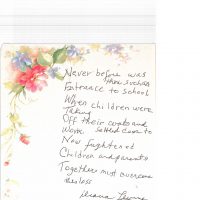 Never before was
there such an
Entrance to school
When children were
Taking
Off their coats and
Work settled down to
Now frightened
Children and parents
Together must overcome
this loss
Diana